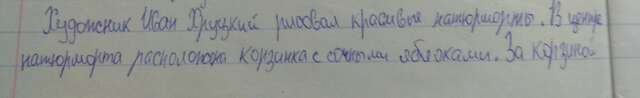 Художник Иван Хруцкий рисовал красивые натюрморты. В центре
натюрморта расположена корзинка с сочными яблоками. За корзиной